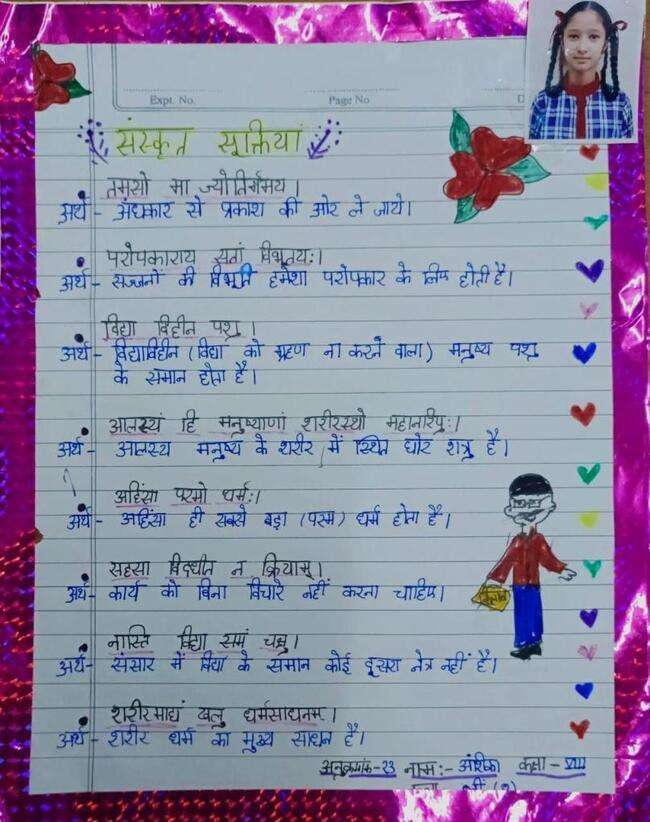 Expt. No.
Page No.
संस्कृत सूक्तियां
तमसो मा ज्योतिर्गमय।
अर्थ - अंधकार से प्रकाश की ओर ले जाये।
परोपकाराय सतां विभूतयः।
अर्थ - सज्जनों की विभूति हमेशा परोपकार के लिए होती है।
विद्या विहीन पशु।
अर्थ - विद्याविहीन (विद्या को ग्रहण ना करने वाला) मनुष्य पशु
के समान होता है।
आलस्यं हि मनुष्याणां शरीरस्यो महानरिपुः।
अर्थ - आलस्य मनुष्य के शरीर में स्थित घोर शत्रु है।
अहिंसा परमो धर्मः।
अर्थ - अहिंसा ही सबसे बड़ा (परम) धर्म होता है।
सहसा विदधीत न क्रियाम्।
अर्थ - कार्य को बिना विचारे नहीं करना चाहिए।
नास्ति विद्या समं चक्षु।
अर्थ - संसार में विद्या के समान कोई दूसरा नेत्र नहीं है।
शरीरमाद्यं खलु धर्मसाधनम्।
अर्थ - शरीर धर्म का मुख्य साधन है।
अनुक्रमांक - 23 नाम :- अंशिका कक्षा - VIII